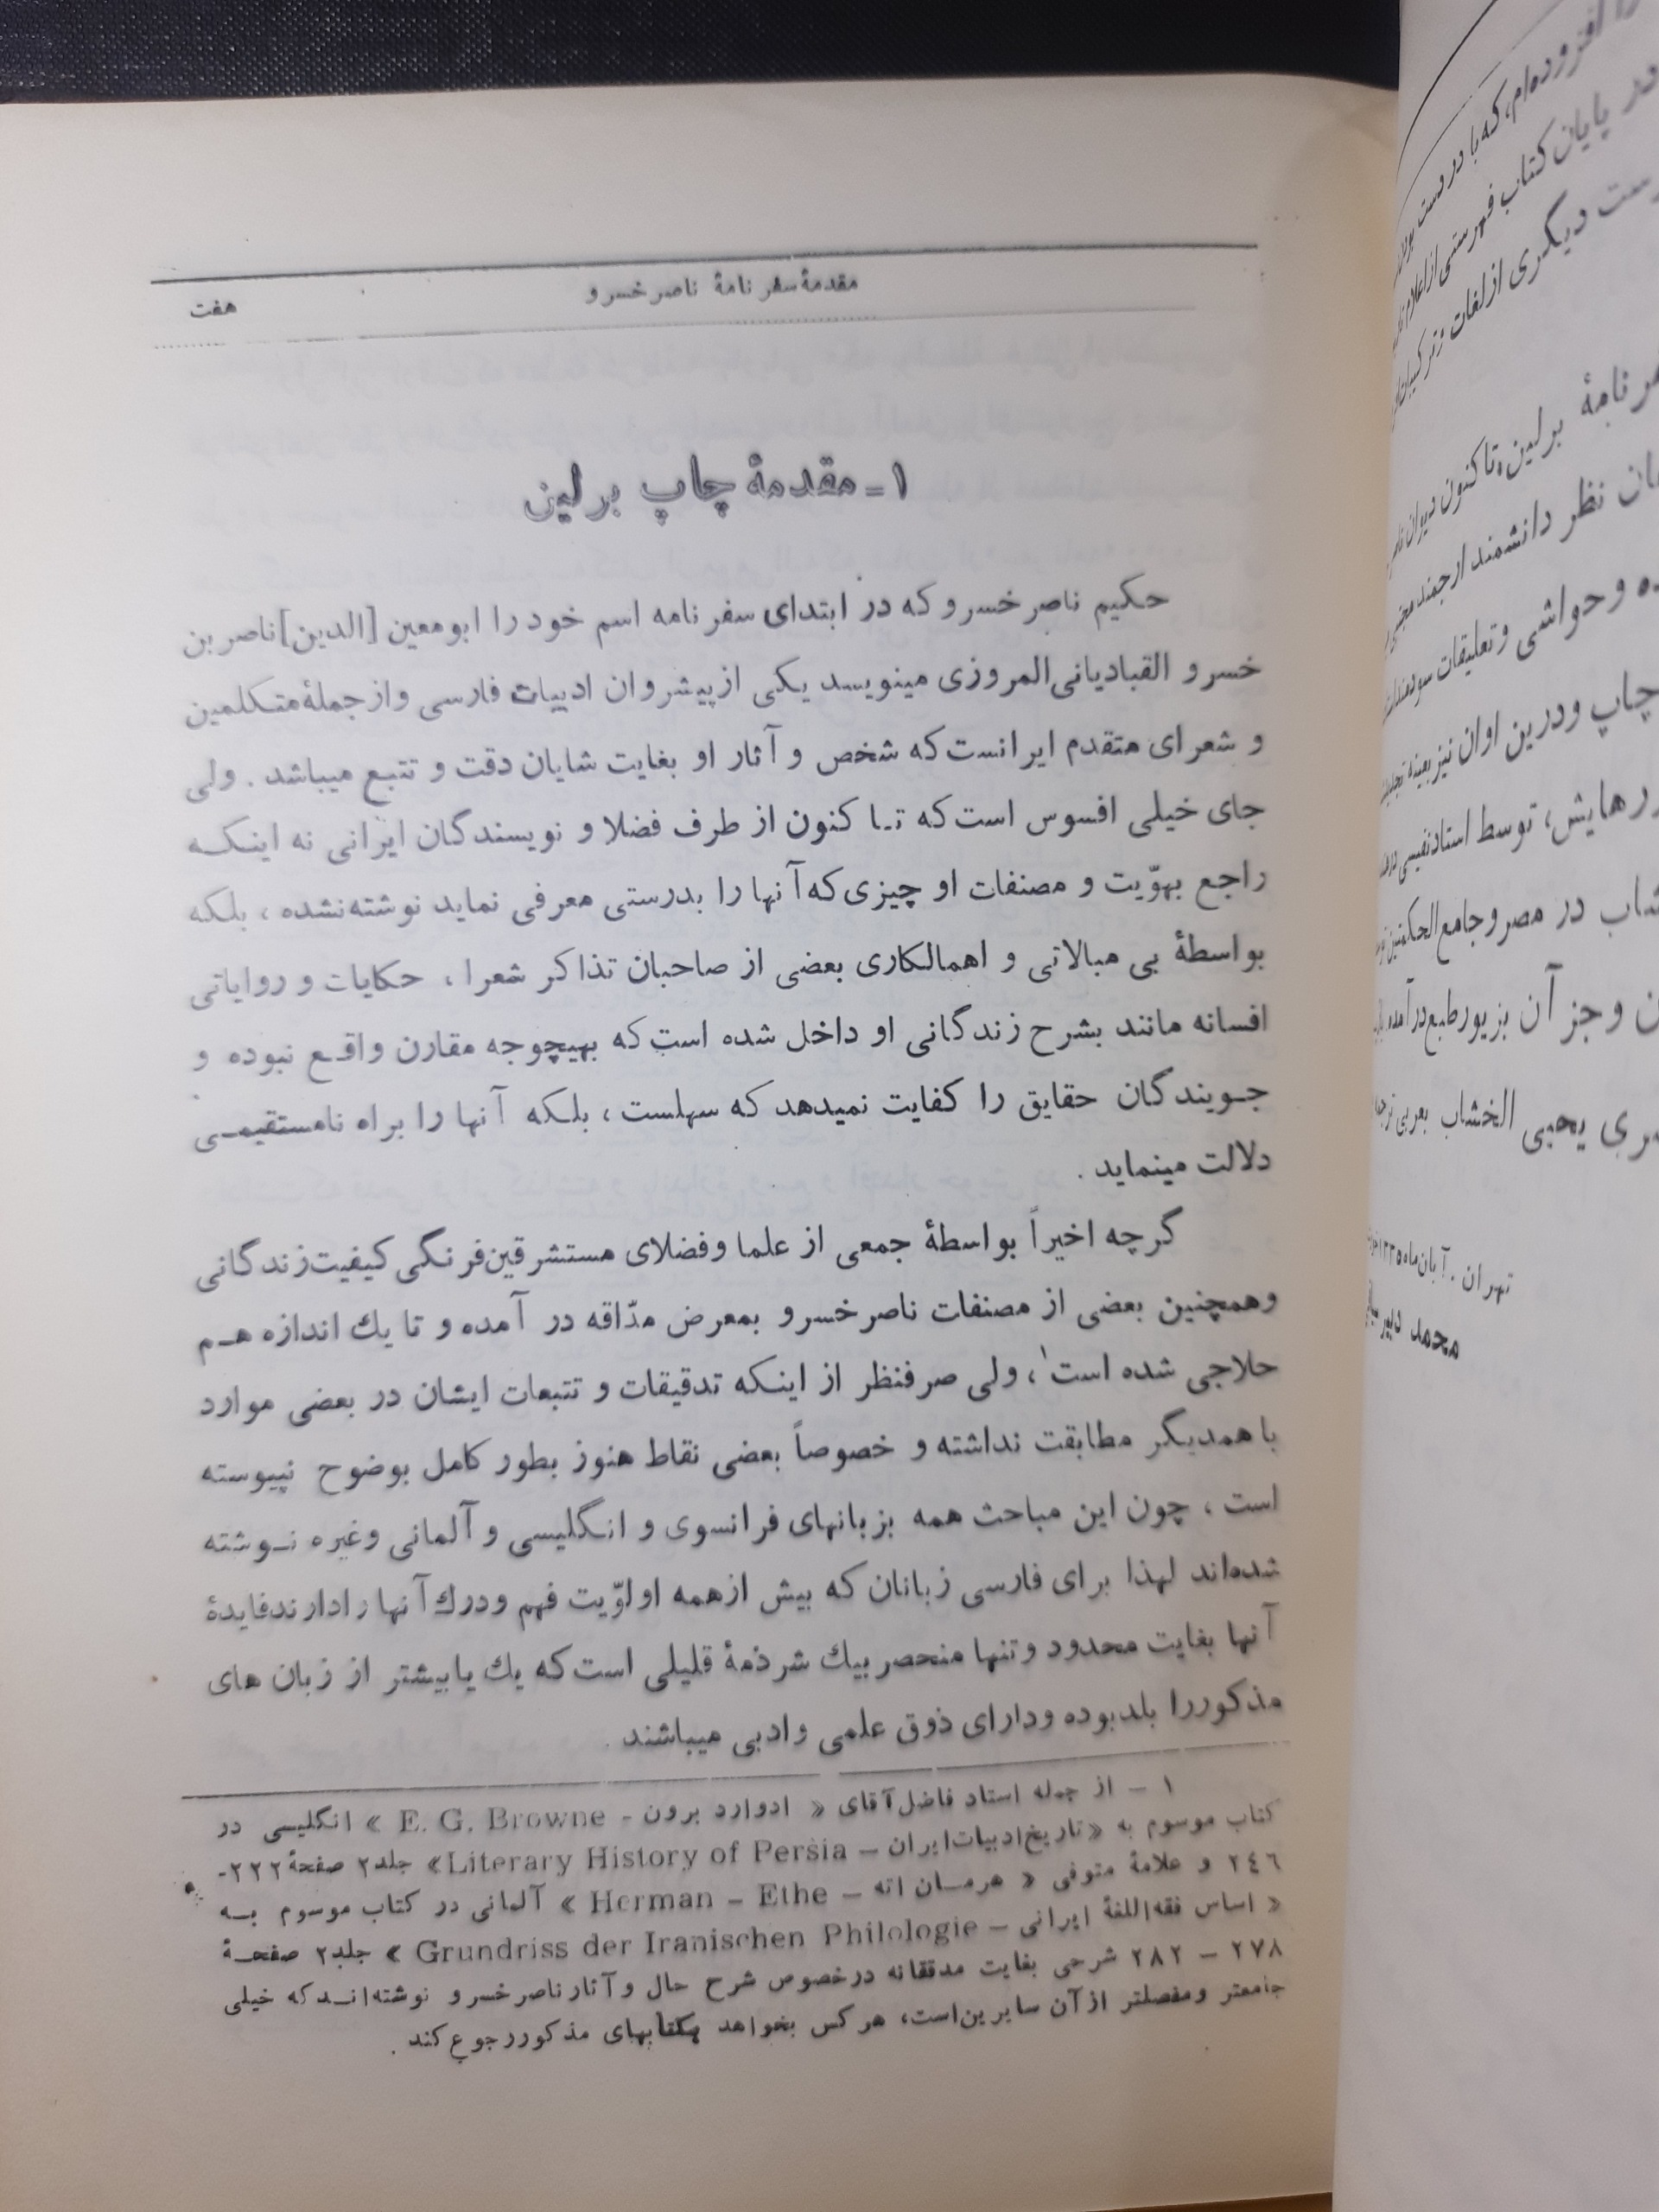 مقدمهٔ سفر نامهٔ ناصر خسرو
هفت
۱ـ مقدمهٔ چاپ برلین
حکیم ناصر خسرو که در ابتدای سفر نامه اسم خود را ابومعین [الدین] ناصر بن
خسرو القبادیانی المروزی مینویسد یکی از پیشروان ادبیات فارسی و از جملهٔ متکلمین
و شعرای متقدم ایرانست که شخص و آثار او بغایت شایان دقت و تتبع میباشد . ولی
جای خیلی افسوس است که تـا کنون از طرف فضلا و نویسندگان ایرانی نه اینکـه
راجع بهوّیت و مصنفات او چیزی که آنها را بدرستی معرفی نماید نوشته نشده ، بلکه
بواسطهٔ بی مبالاتی و اهمالکاری بعضی از صاحبان تذاکر شعرا ، حکایات و روایاتی
افسانه مانند بشرح زندگانی او داخل شده است که بهیچوجه مقارن واقـع نبوده و
جـویندگان حقایق را کفایت نمیدهد که سهلست ، بلـکه آنها را براه نامستقیمـی
دلالت مینماید .
گرچه اخیراً بواسطهٔ جمعی از علما و فضلای مستشرقین فرنگی کیفیت زندگانی
وهمچنین بعضی از مصنفات ناصر خسرو بمعرض مدّاقه در آمده و تا یك اندازه هـم
حلاجی شده است۱ ، ولی صرفنظر از اینـکه تدقیقات و تتبعات ایشان در بعضی موارد
با همدیگر مطابقت نداشته و خصوصاً بعضی نقاط هنوز بطور کامل بوضوح نپیوسته
است ، چون این مباحث همه بزبانهای فرانسوی و انگلیسی و آلمانی وغیره نـوشته
شده‌اند لهذا برای فارسی زبانان که بیش از همه اولوّیت فهم ودرك آنها را دارند فایدهٔ
آنها بغایت محدود و تنها منحصر بیك شرذمهٔ قلیلی است که یك یا بیشتر از زبان های
مذکوررا بلد بوده ودارای ذوق علمی وادبی میباشند .
۱ – از جمله استاد فاضل آقای « ادوارد برون - E. G. Browne » انگلیسی در
کتاب موسوم به « تاریخ ادبیات ایران – Literary History of Persia» جلد ۲ صفحهٔ ۲۲۲-
۲٤٦ و علامهٔ متوفی « هرمـان اته – Herman – Ethe » آلمانی در کتاب موسوم بـه
« اساس فقه اللغهٔ ایرانی – Grundriss der Iranischen Philologie » جلد ۲ صفحـهٔ
۲۷۸ – ۲۸۲ شرحی بغایت مدققانه درخصوص شرح حال و آثار ناصر خسرو نوشته‌انـد که خیلی
جامعتر ومفصلتر از آن سایرین است، هر کس بخواهد بکتابهای مذکور رجوع کند .
افزوده‌ام، که با در دست
در پایان کتاب فهرستی از اعلام
دیگری از لغات و
برلین، تاکنون دیوان
نظر دانشمند ارجمند
و حواشی و تعلیقات سودمند
چاپ ودرین اوان نیز بعینه
توسط استاد نفیسی
در مصر و جامع الحکمتین
و جز آن بزیور طبع در آمده
یحیی الخشاب بعربی
تهران . آبان ماه ۱۳۳۵
محمد دبیر